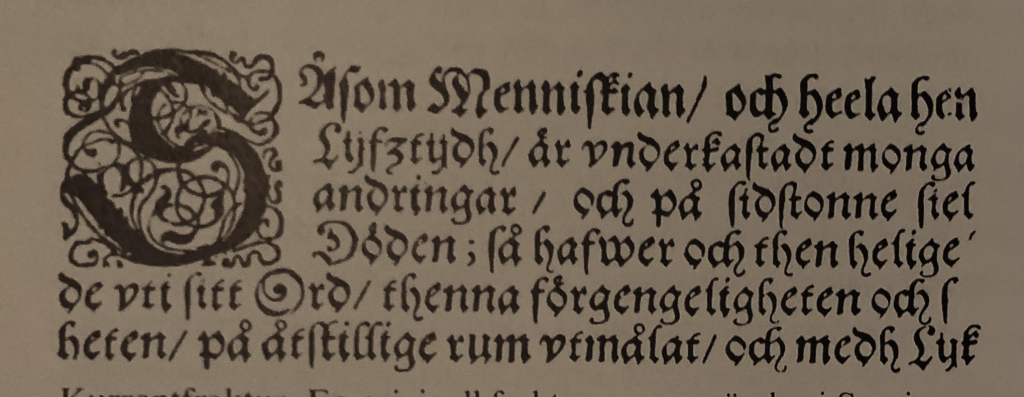 SÅsom Menniſkian/ och heela hen
Lijfztijdh/ är vnderkaſtadt monga
andringar / och på ſidſtonne ſiel
Döden; ſå hafwer och then helige
de vti ſitt Ord/ thenna förgengeligheten och ſ
heten/ på åtſkillige rum vtmålat/ och medh Lijk